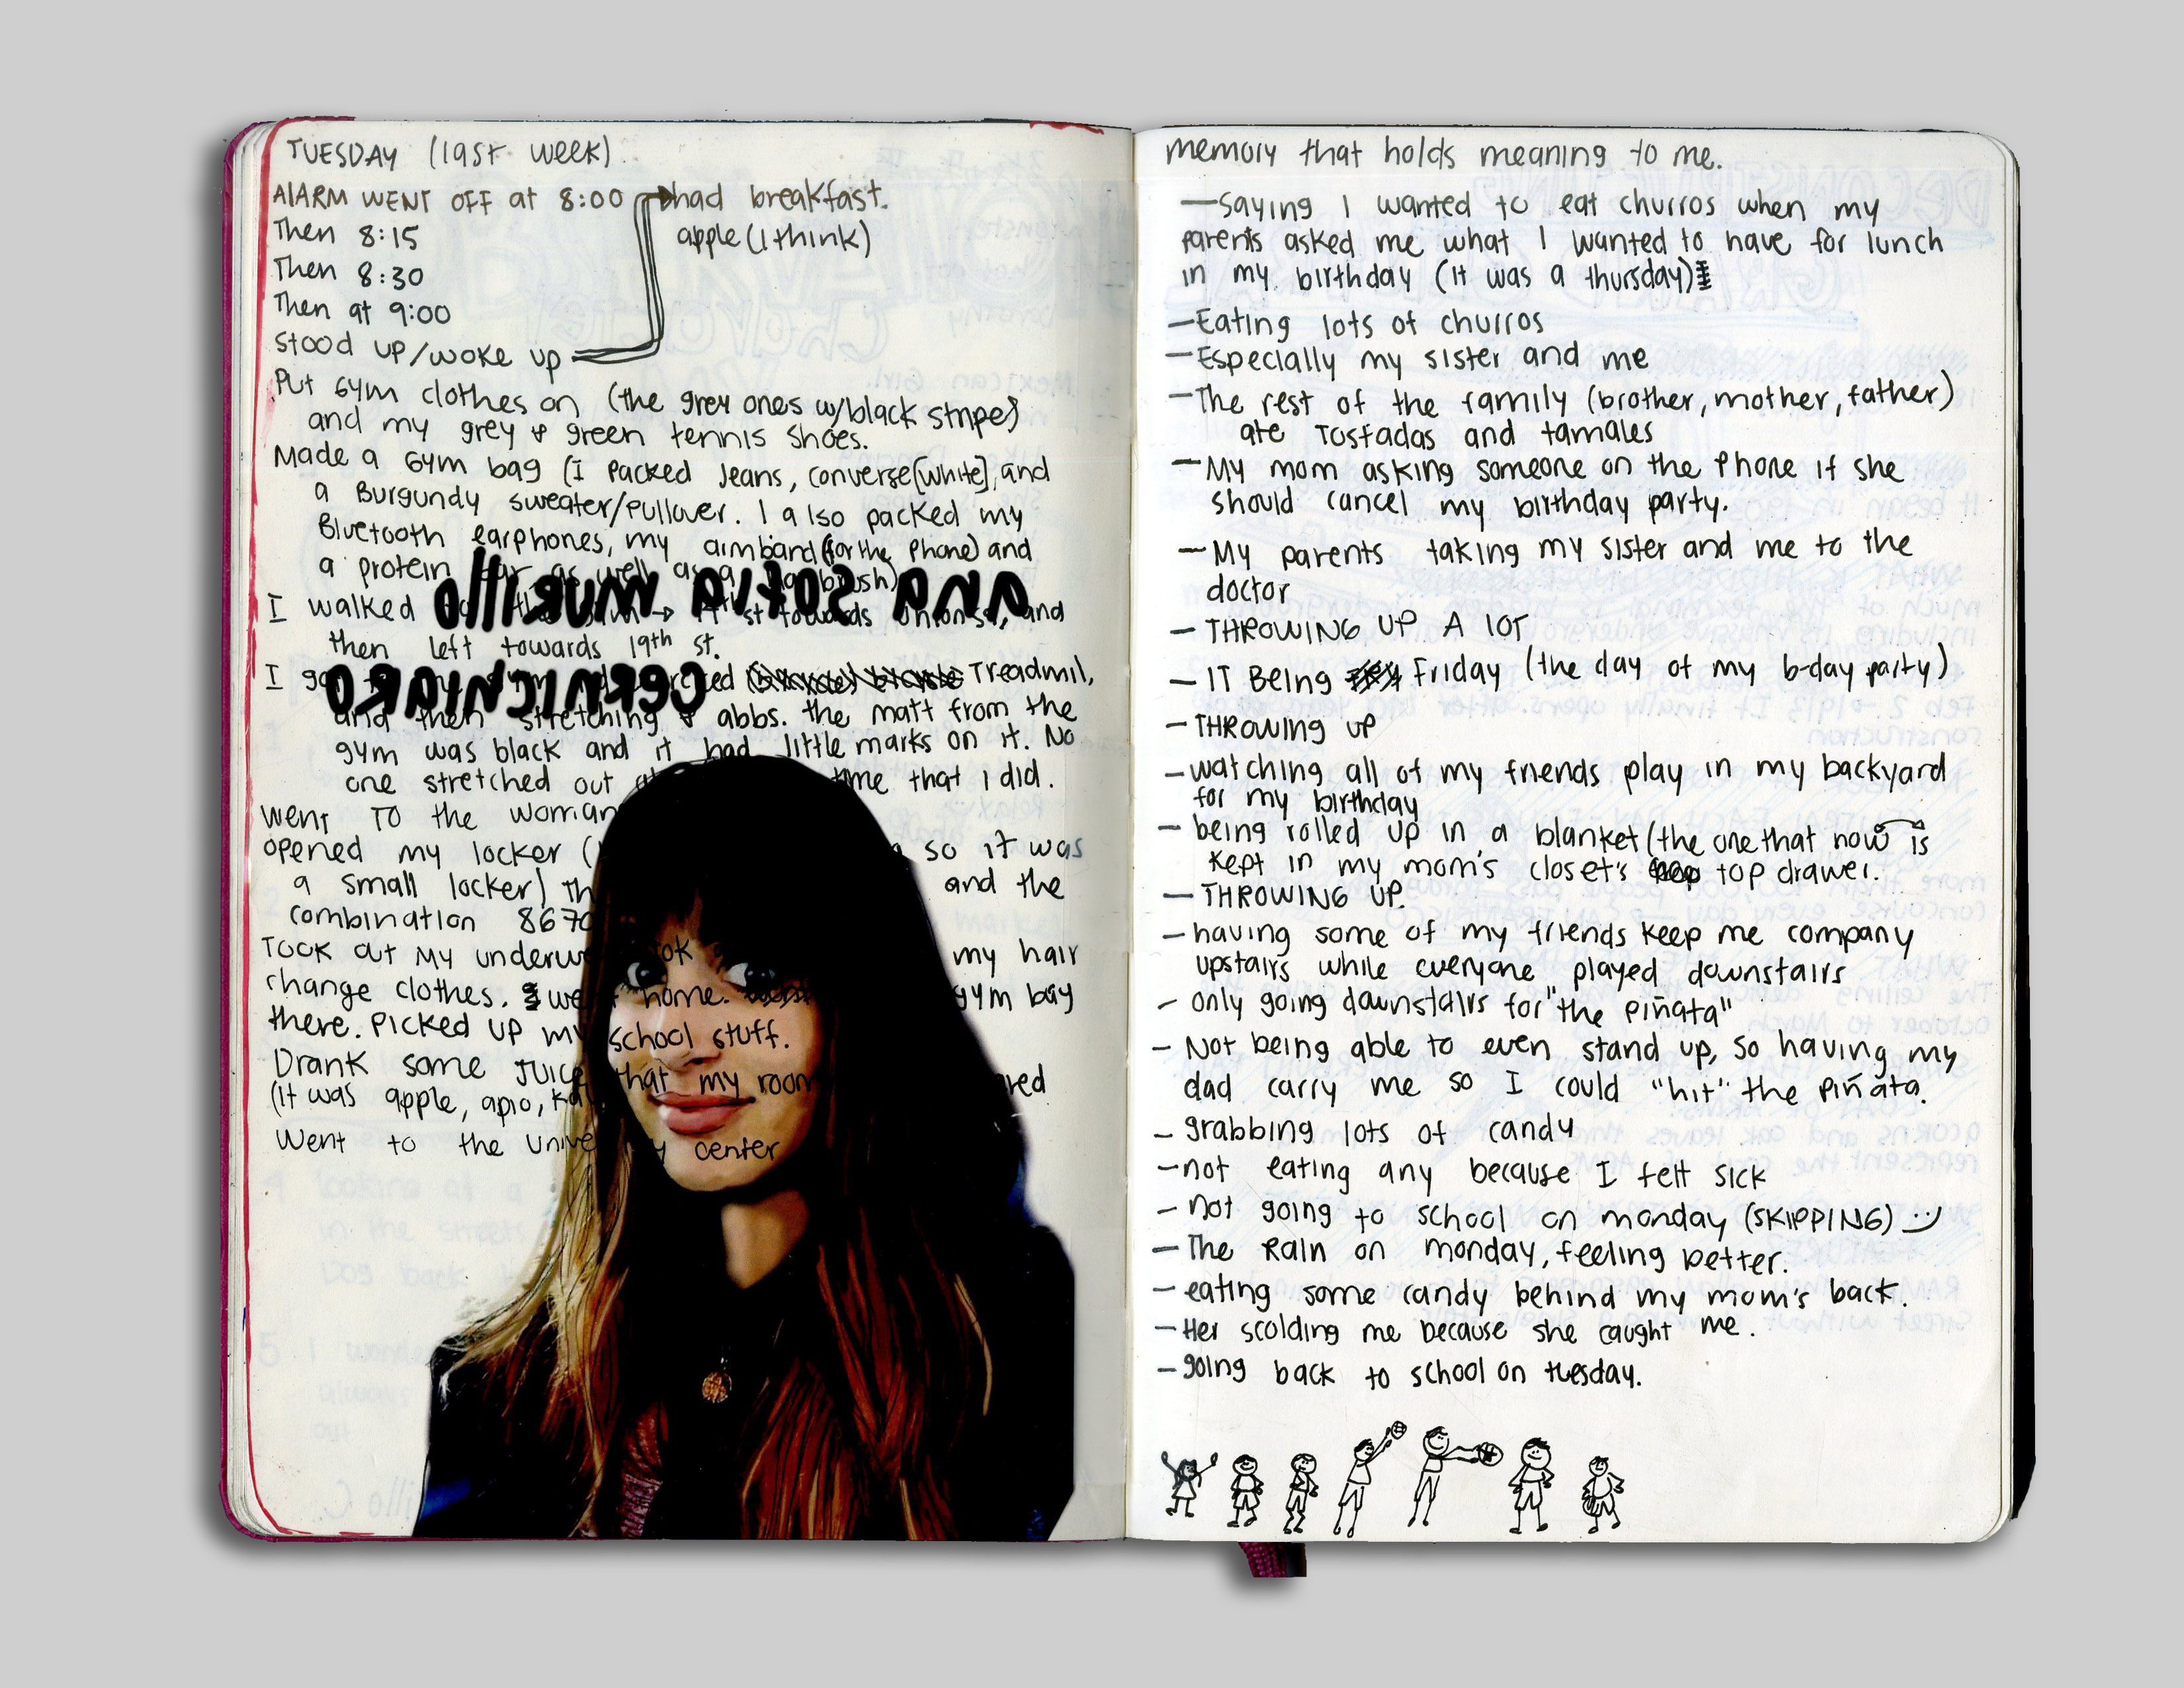 TUESDAY (last week)
AlARM WENT OFF at 8:00
had breakfast.
apple (I think)
Then 8:15
Then 8:30
Then at 9:00
Stood up/woke up
Put gym clothes on (the grey ones w/black stripe)
and my grey & green tennis shoes.
Made a gym bag (I packed Jeans, converse [white], and
a Burgundy sweater/pullover. I also packed my
Bluetooth earphones, my armband (for the phone) and
a protein bar as well as a
I walked st towards and
then left towards 19th st.
ana sofia murillo
cernichiaro
I Treadmil,
and then stretching & abbs. the matt from the
gym was black and it had little marks on it. No
one stretched out time that i did.
went TO the
opened my locker so it was
a small locker) and the
combination 8670
Took my my hair
change clothes. home. gym bag
there. Picked up my school stuff.
Drank some juice that my
(it was apple, apio,
Went to the center
memory that holds meaning to me.
—Saying I wanted to eat churros when my
parents asked me what I wanted to have for lunch
in my birthday (it was a thursday)
—Eating lots of churros
—Especially my sister and me
—The rest of the family (brother, mother, father)
ate Tostadas and tamales
—My mom asking someone on the phone if she
should cancel my birthday party.
—My parents taking my sister and me to the
doctor
— THROWING UP A lOT
— IT Being Friday (the day of my b-day party)
—THROWING UP
—watching all of my friends play in my backyard
for my birthday
— being rolled up in a blanket (the one that now is
kept in my mom's closet's top drawer.
— THROWING UP.
—having some of my friends keep me company
upstairs while everyone played downstairs
— only going downstairs for "the piñata"
— Not being able to even stand up, so having my
dad carry me so I could "hit" the piñata.
— grabbing lots of candy
—not eating any because I felt sick
— not going to school on monday (SKIPPING) :)
—The Rain on monday, feeling better.
— eating some candy behind my mom's back.
—Her scolding me because she caught me.
—going back to school on tuesday.